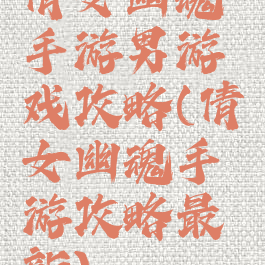 倩女幽魂
手游男游
戏攻略(倩
女幽魂手
游攻略最
新)